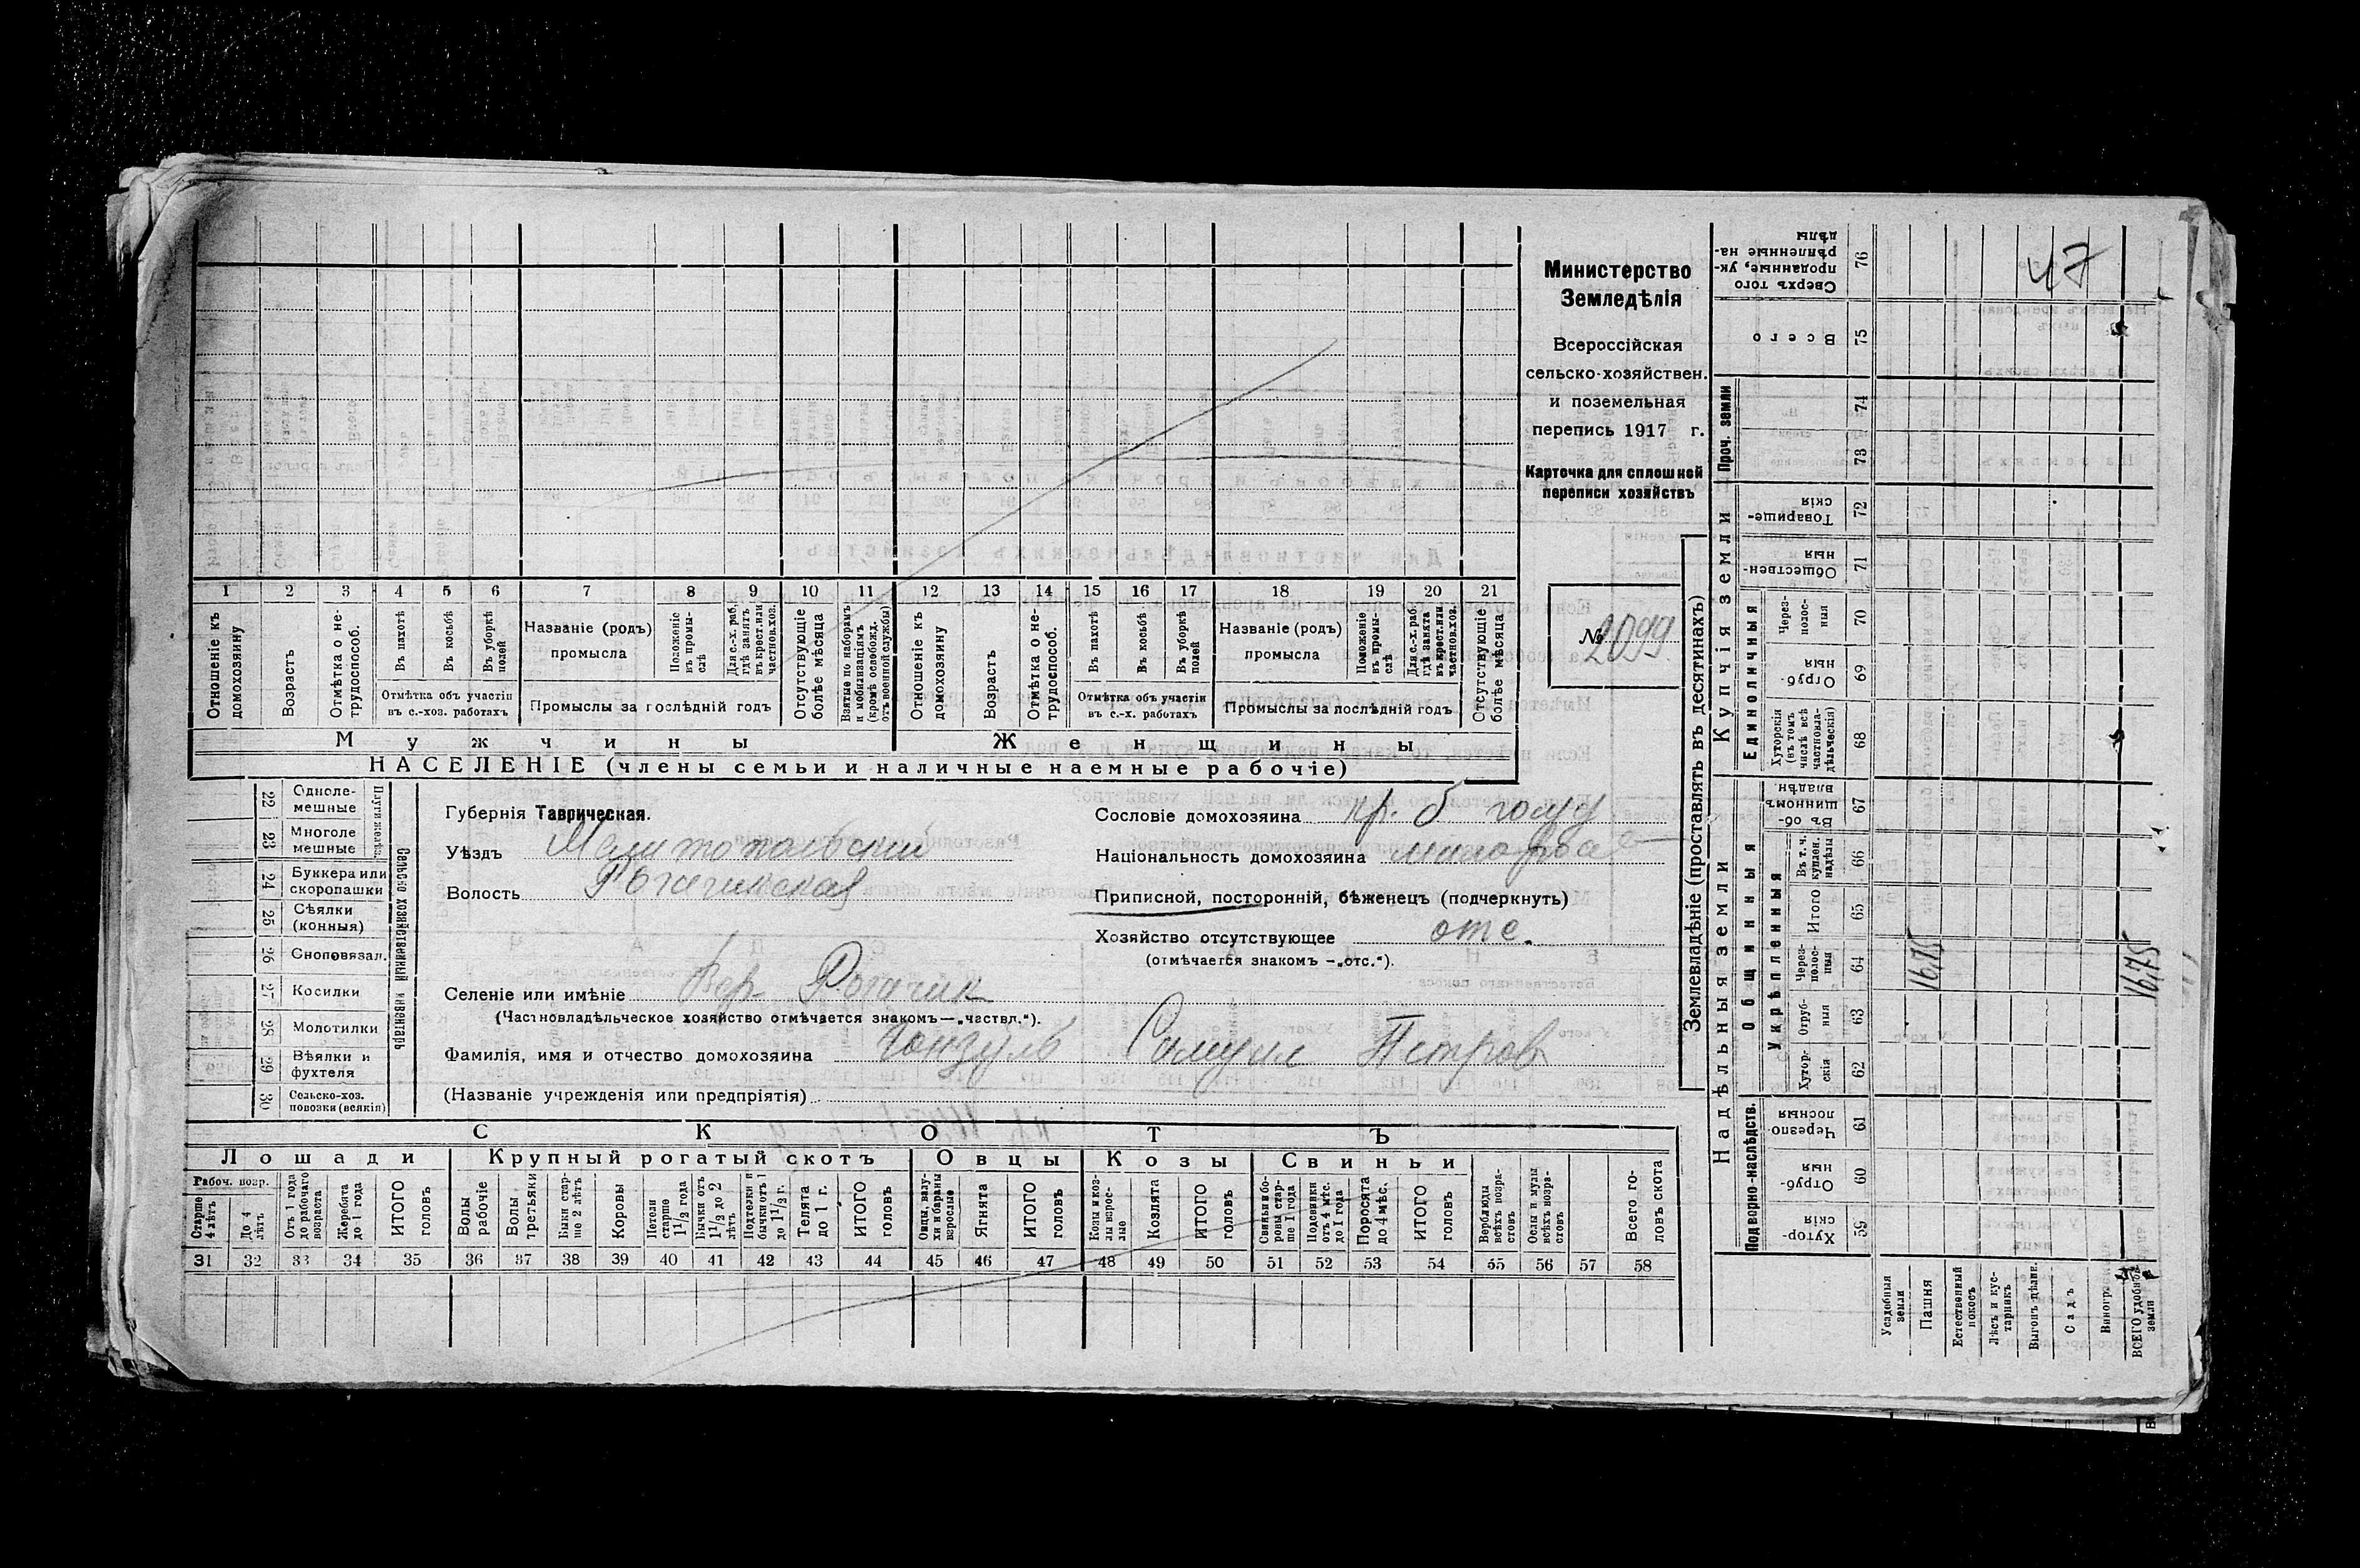 47
Министерство
Земледѣлія
Всероссійская
сельско-хозяйствен.
и поземельная
перепись 1917 г.
Карточка для сплошной
переписи хозяйствъ
№ 2099
1 2 3 4 5 6 7 8 9 10 11 12 13 14 15 16 17 18 19 20 21
Отношеніе къ домохозяину
Возрастъ
Отмѣтка о не-трудоспособ.
Въ пахотѣ
Въ косьбѣ
Въ уборкѣ полей
Отмѣтка объ участіи
въ с.-хоз. работахъ
Названіе (родъ)
промысла
Положеніе въ промы-слѣ
Для с.-х. раб., гдѣ занятъ въ крест. или частнов. хоз.
Промыслы за послѣдній годъ
Отсутствующіе болѣе мѣсяца
Взятые по наборамъ и мобилизаціямъ (кромѣ освобожд. отъ военной службы)
Отношеніе къ домохозяину
Возрастъ
Отмѣтка о не-трудоспособ.
Въ пахотѣ
Въ косьбѣ
Въ уборкѣ полей
Отмѣтка объ участіи
въ с.-х. работахъ
Названіе (родъ)
промысла
Положеніе въ промы-слѣ
Для с.-х. раб. гдѣ занята въ крест. или частнов. хоз.
Промыслы за послѣдній годъ
Отсутствующіе болѣе мѣсяца
Мужчины
Женщины
НАСЕЛЕНІЕ (члены семьи и наличные наемные рабочіе)
Сельско хозяйственный инвентарь
Плуги желѣз.
22 Одноле-мешные
23 Многоле мешные
24 Буккера или скоропашки
25 Сѣялки (конныя)
26 Сноповязал.
27 Косилки
28 Молотилки
29 Вѣялки и фухтеля
30 Сельско-хоз. повозки (всякія)
Губернія Таврическая.
Уѣздъ Мелитопольский
Волость Рогачикская
Сословіе домохозяина кр. б
Національность домохозяина малоросс
Приписной, посторонній, бѣженецъ (подчеркнуть)
Хозяйство отсутствующее отс.
(отмѣчается знакомъ —„отс.“).
Селеніе или имѣніе Вер. Рогачик
(Частновладѣльческое хозяйство отмѣчается знакомъ—„частвл.“).
Фамилія, имя и отчество домохозяина Гонзуль Самуил Петров
(Названіе учрежденія или предпріятія)
СКОТЪ
Лошади
Крупный рогатый скотъ
Овцы
Козы
Свиньи
Рабоч. возр.
Старше 4 лѣтъ
До 4 лѣтъ
Отъ 1 года до рабочаго возраста
Жеребята до 1 года
ИТОГО головъ
Волы рабочіе
Волы третьяки
Быки стар-ше 2 лѣтъ
Коровы
Нетели старше 1 1/2 года
Бычки отъ 1 1/2 до 2 лѣтъ
Подтелки и бычки отъ 1 до 1 1/2 г.
Телята до 1 г.
ИТОГО головъ
Овцы, валу-хи и бараны взрослые
Ягнята
ИТОГО головъ
Козы и коз-лы взрос-лые
Козлята
ИТОГО головъ
Свиньи и бо-ровы стар-ше 1 года
Подсвинки отъ 4 мѣс. до 1 года
Поросята до 4 мѣс.
ИТОГО головъ
Верблюды всѣхъ возра-стовъ
Ослы и мулы всѣхъ возра-стовъ
Всего го-ловъ скота
31 32 33 34 35 36 37 38 39 40 41 42 43 44 45 46 47 48 49 50 51 52 53 54 55 56 57 58
Землевладѣніе (проставлять въ десятинахъ)
Надѣльныя земли
Купчія земли
Проч. земли
Подворно-наслѣдств.
Общинныя
Укрѣпленныя
Единоличныя
Хутор-скія 59
Отруб-ныя 60
Черезпо-лосныя 61
Хутор-скія 62
Отруб-ныя 63
Через-полос-ныя 64
Итого 65
Въ т. ч. куплен. надѣлы 66
Въ об-щинномъ владѣн. 67
Хуторскія (въ томъ числѣ всѣ частновла-дѣльческія) 68
Отруб-ныя 69
Через-полос-ныя 70
Обществен-ныя 71
Товарище-скія 72
73
74
Всего 75
Сверхъ того проданные, ук-рѣпленные на-дѣлы 76
16,75
16,75
Усадебныя земли
Пашня
Естественный покосъ
Лѣсъ и кус-тарникъ
Выгонъ дѣлян.
Садъ
ВСЕГО удобной земли